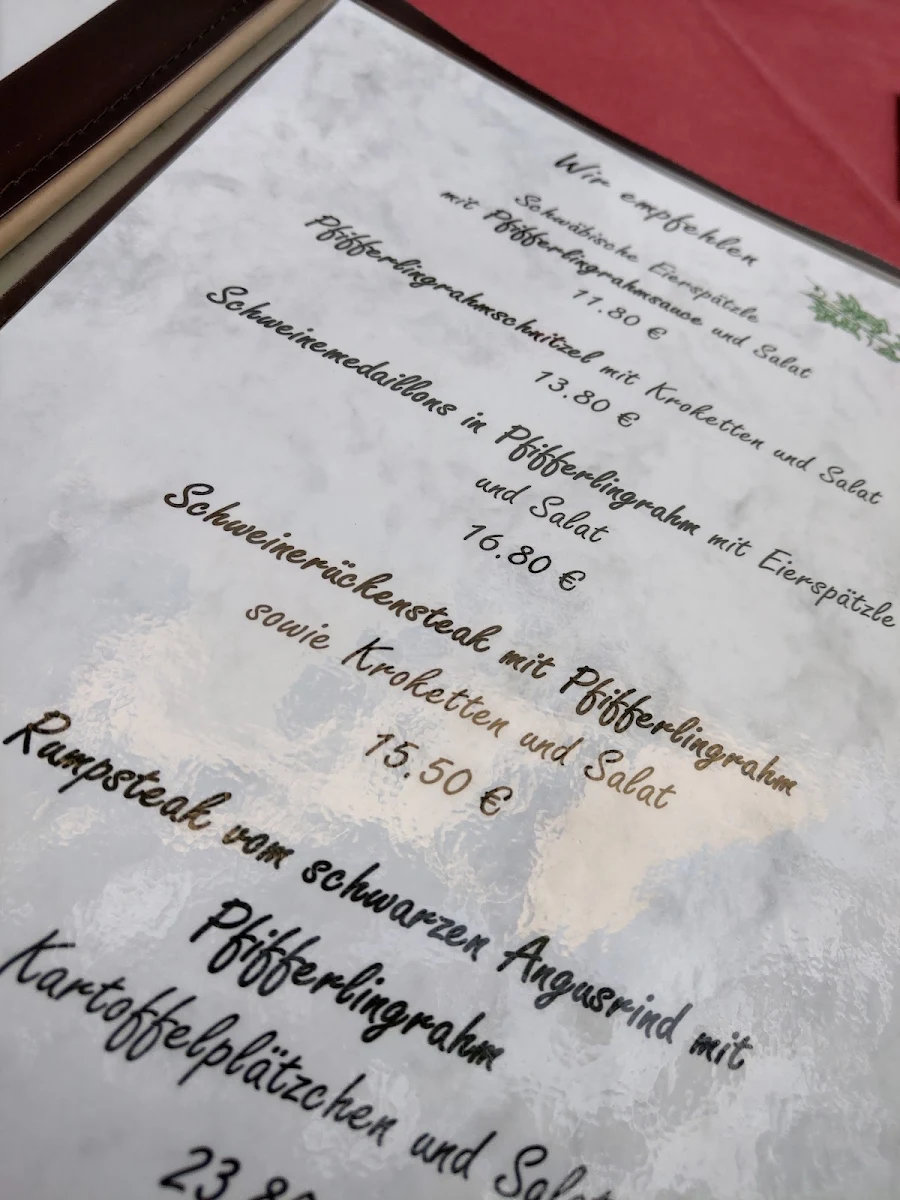 Wir empfehlen
Schwäbische Eierspätzle
mit Pfifferlingrahmsauce und Salat
11.80 €
Pfifferlingrahmschnitzel mit Kroketten und Salat
13.80 €
Schweinemedaillons in Pfifferlingrahm mit Eierspätzle
und Salat
16.80 €
Schweinerückensteak mit Pfifferlingrahm
sowie Kroketten und Salat
15.50 €
Rumpsteak vom schwarzen Angusrind mit
Pfifferlingrahm
Kartoffelplätzchen und Salat
23.80